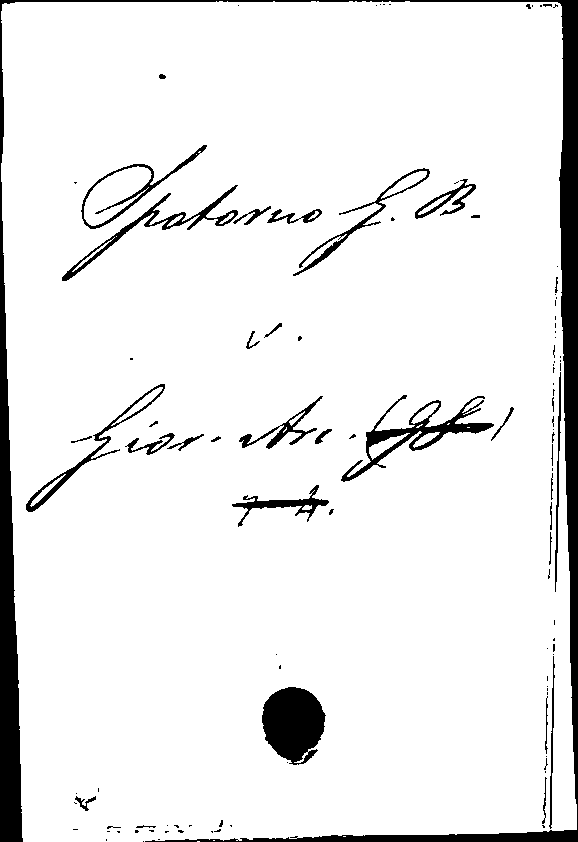 Spotorno G. B.
v.
Gior. Arc. (98)
7 4.